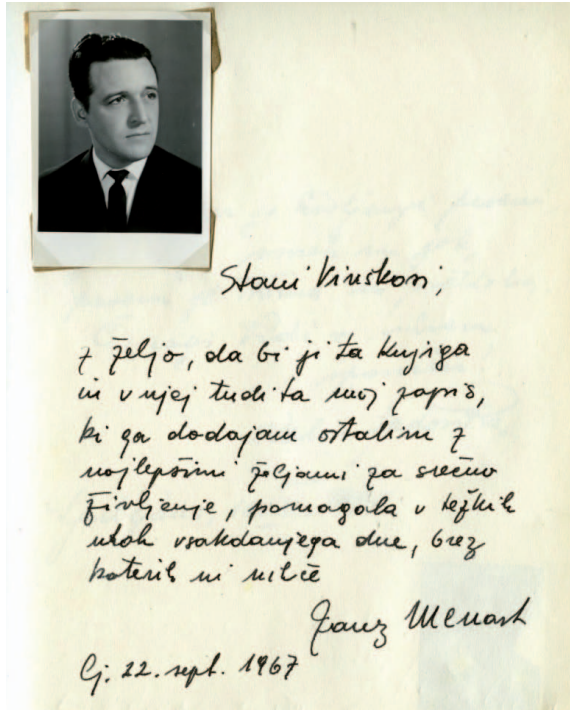 Stani Vinškovi,
z željo, da bi ji ta knjiga
in v njej tudi ta moj zapis,
ki ga dodajam ostalim z
najlepšimi željami za srečno
življenje, pomagala v težkih
urah vsakdanjega dne, brez
katerih ni nihče
Janez Menart
Lj. 22. sept. 1967